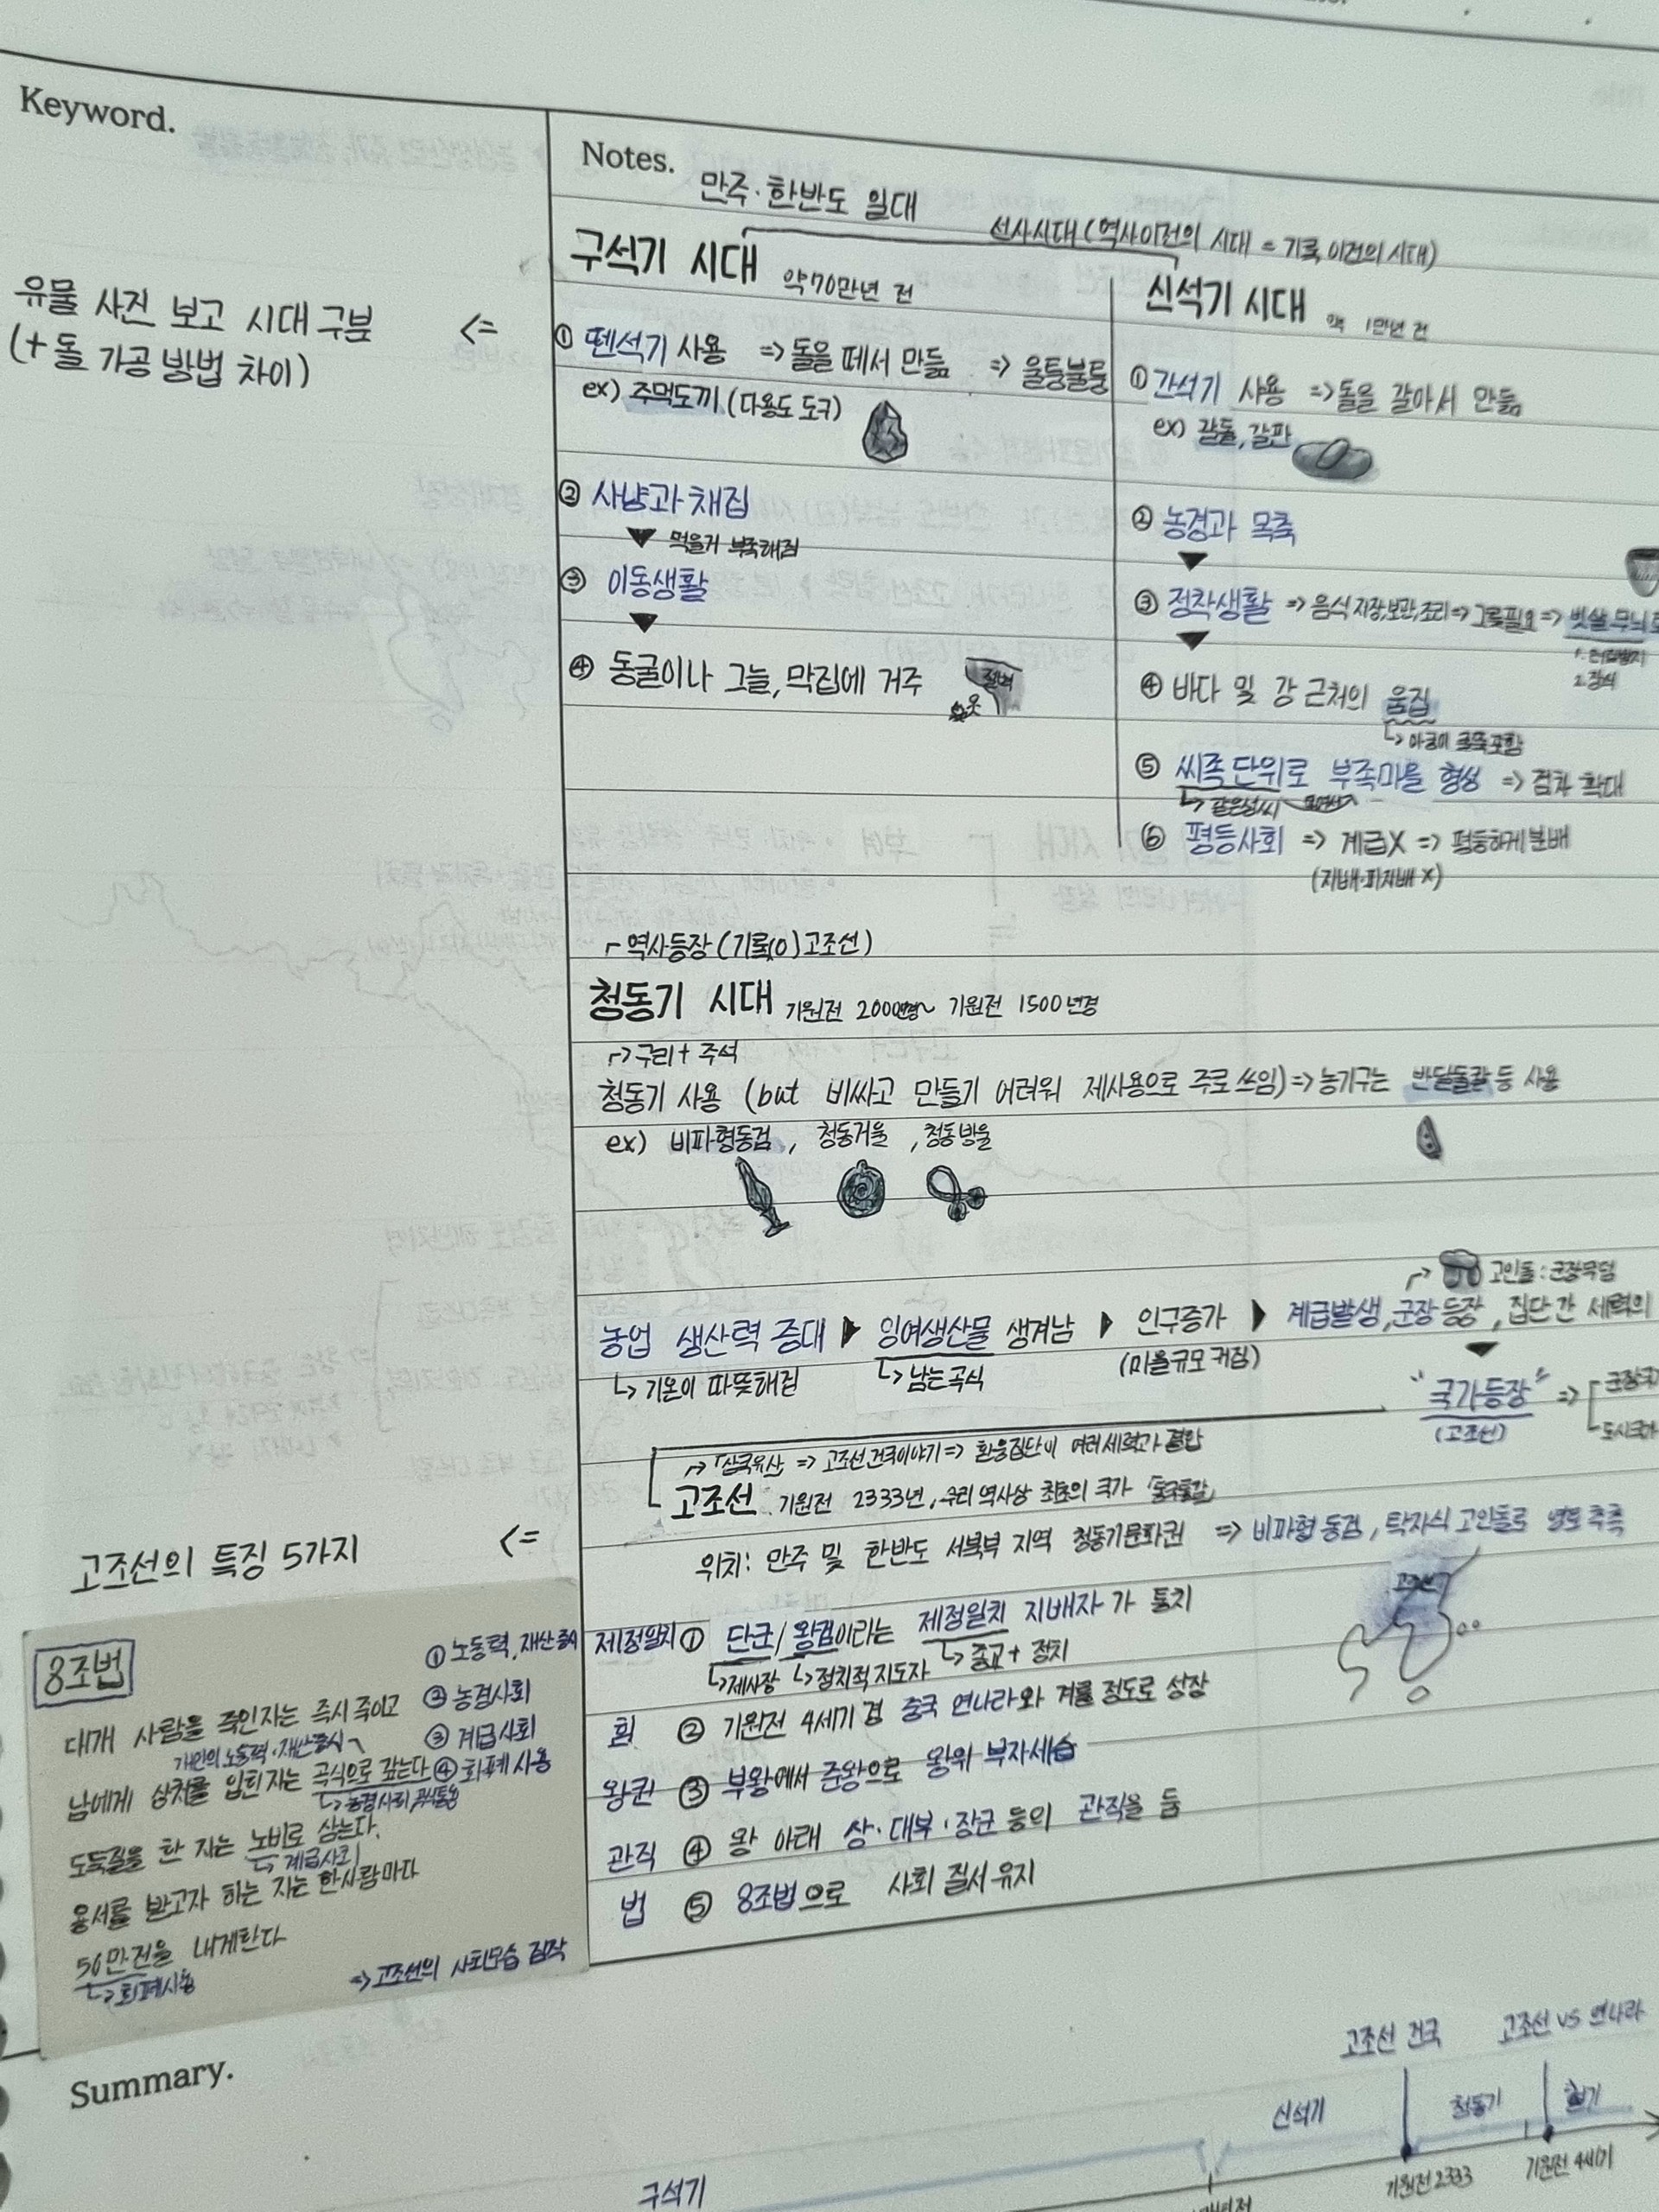 Keyword.
유물 사진 보고 시대 구분 <=
(+ 돌 가공 방법 차이)
고조선의 특징 5가지 <=
8조법
① 노동력, 재산 중시
② 농경사회
③ 계급사회
④ 화폐사용
대개 사람을 죽인자는 즉시 죽이고
개인의 노동력·재산중시
남에게 상처를 입힌 자는 곡식으로 갚는다
↳ 농경사회
도둑질을 한 자는 노비로 삼는다.
↳ 계급사회
용서를 받고자 하는 자는 한사람마다
50만전을 내게한다
↳ 화폐사용
=> 고조선의 사회모습 짐작
Notes.
만주·한반도 일대
선사시대 (역사이전의 시대 = 기록 이전의 시대)
구석기 시대 약70만년 전
① 뗀석기 사용 => 돌을 떼서 만듦 => 울퉁불퉁
ex) 주먹도끼 (다용도 도구)
② 사냥과 채집
▼ 먹을거 부족해짐
③ 이동생활
▼
④ 동굴이나 그늘, 막집에 거주
절벽
신석기 시대 약 1만년 전
① 간석기 사용 => 돌을 갈아서 만듦
ex) 갈돌, 갈판
② 농경과 목축
▼
③ 정착생활 => 음식 저장,보관,조리 => 그릇필요 => 빗살무늬토
2. 장식
▼
④ 바다 및 강 근처의 움집
⑤ 씨족 단위로 부족마을 형성 => 점차 확대
↳ 같은성씨
⑥ 평등사회 => 계급X => 평등하게 분배
(지배·피지배 X)
역사등장 (기록(O) 고조선)
청동기 시대 기원전 2000년경~ 기원전 1500년경
구리 + 주석
청동기 사용 (but 비싸고 만들기 어려워 제사용으로 주로 쓰임) => 농기구는 반달돌칼 등 사용
ex) 비파형동검, 청동거울, 청동방울
고인돌 : 군장무덤
농업 생산력 증대 ▶ 잉여생산물 생겨남 ▶ 인구증가 ▶ 계급발생, 군장 등장, 집단 간 세력의
↳ 기온이 따뜻해짐 ↳ 남는곡식 (마을규모 커짐)
▼
"국가등장" => 군장국가
(고조선) 도시국가
「삼국유사 => 고조선 건국이야기 => 환웅집단이 여러세력과 결합
고조선 기원전 2333년, 우리 역사상 최초의 국가 동국통감
위치: 만주 및 한반도 서북부 지역 청동기문화권 => 비파형 동검, 탁자식 고인돌로 영토 추측
고조선
제정일치 ① 단군/왕검이라는 제정일치 지배자 가 통치
↳제사장 ↳정치적지도자 ↳ 종교 + 정치
힘 ② 기원전 4세기 경 중국 연나라와 겨룰 정도로 성장
왕권 ③ 부왕에서 준왕으로 왕위 부자세습
관직 ④ 왕 아래 상·대부·장군 등의 관직을 둠
법 ⑤ 8조법으로 사회 질서 유지
Summary.
고조선 건국 고조선 vs 연나라
구석기 신석기 청동기 철기
기원전 2333 기원전 4세기